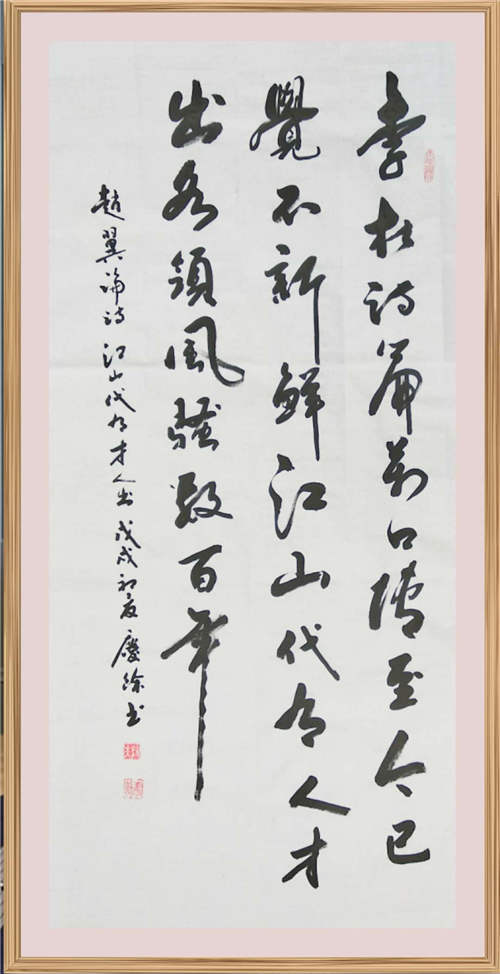 李杜詩篇萬口傳至今已
覺不新鮮江山代有人才
出各領風騷數百年
趙翼論詩 江山代有才人出 戊戌初夏 慶 書